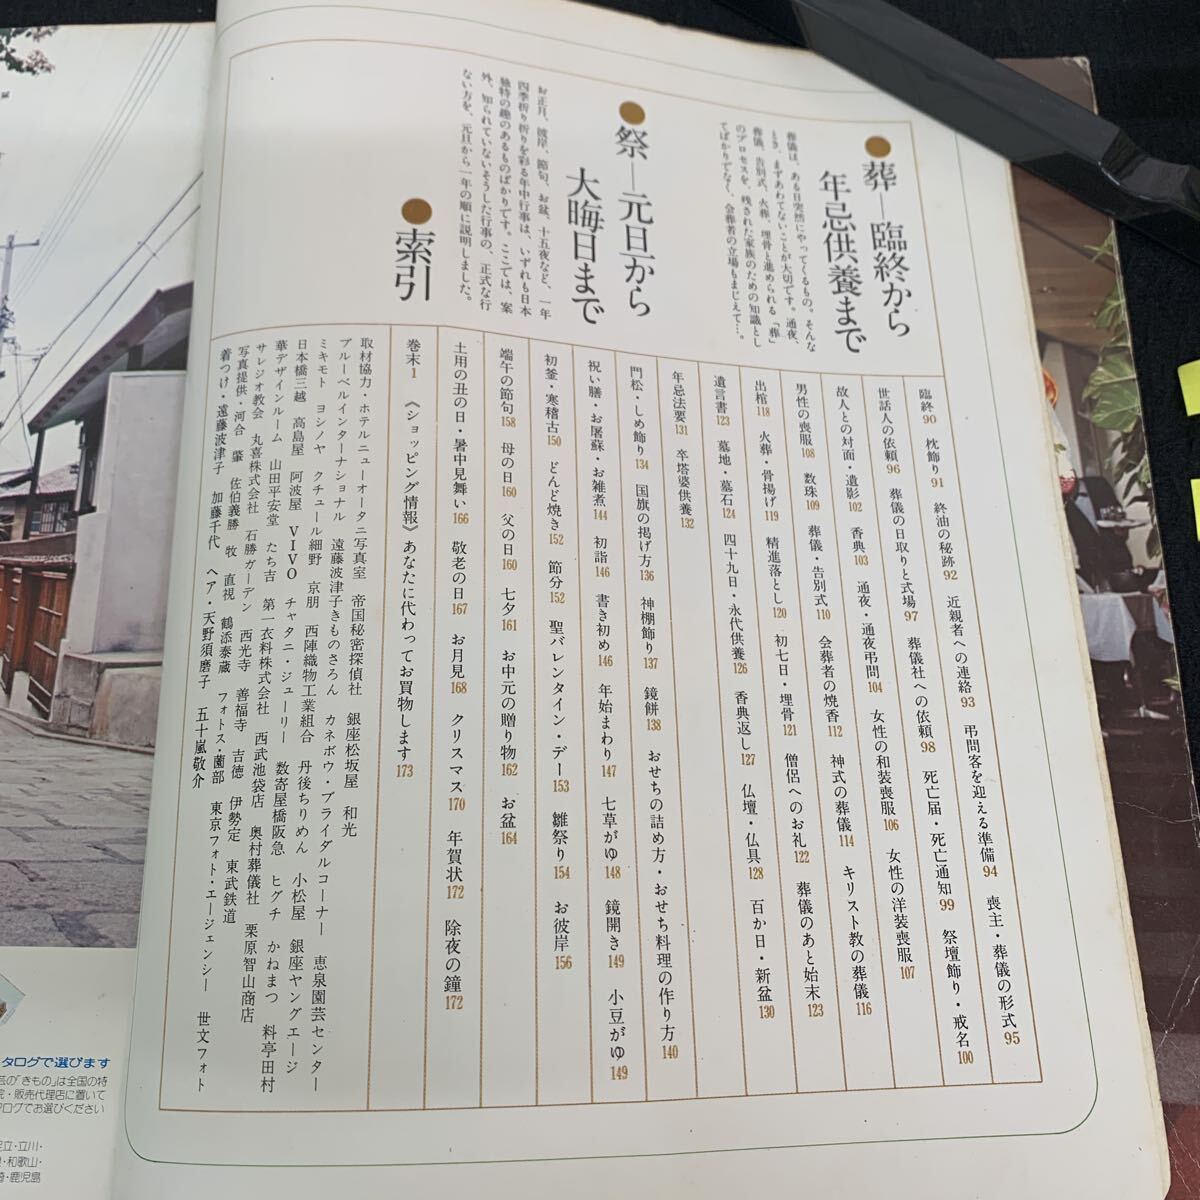 ●葬―臨終から
年忌供養まで
葬儀は、ある日突然にやってくるもの。そんな
とき、まずあわてないことが大切です。通夜、
葬儀、告別式、火葬、埋骨と進められる「葬」
のプロセスを、残された家族のための知識とし
てばかりでなく、会葬者の立場もまじえて…。
臨終90 枕飾り91 終油の秘跡92 近親者への連絡93 弔問客を迎える準備94 喪主・葬儀の形式95
世話人の依頼96 葬儀の日取りと式場97 葬儀社への依頼98 死亡届・死亡通知99 祭壇飾り・戒名100
故人との対面・遺影102 香典103 通夜・通夜弔問104 女性の和装喪服106 女性の洋装喪服107
男性の喪服108 数珠109 葬儀・告別式110 会葬者の焼香112 神式の葬儀114 キリスト教の葬儀116
出棺118 火葬・骨揚げ119 精進落とし120 初七日・埋骨121 僧侶へのお礼122 葬儀のあと始末123
遺言書123 墓地・墓石124 四十九日・永代供養126 香典返し127 仏壇・仏具128 百か日・新盆130
年忌法要131 卒塔婆供養132
●祭―元旦から
大晦日まで
お正月、彼岸、節句、お盆、十五夜など、一年
四季折り折りを彩る年中行事は、いずれも日本
独特の趣のあるものばかりです。ここでは、案
外、知られていないそうした行事の、正式な行
ない方を、元旦から一年の順に説明しました。
門松・しめ飾り134 国旗の掲げ方136 神棚飾り137 鏡餅138 おせちの詰め方・おせち料理の作り方140
祝い膳・お屠蘇・お雑煮144 初詣146 書き初め146 年始まわり147 七草がゆ148 鏡開き149 小豆がゆ149
初釜・寒稽古150 どんど焼き152 節分152 聖バレンタイン・デー153 雛祭り154 お彼岸156
端午の節句158 母の日160 父の日160 七夕161 お中元の贈り物162 お盆164
土用の丑の日・暑中見舞い166 敬老の日167 お月見168 クリスマス170 年賀状172 除夜の鐘172
●索引
巻末1 《ショッピング情報》あなたに代わってお買物します173
取材協力・ホテルニューオータニ写真室 帝国秘密探偵社 銀座松坂屋 和光
ブルーベルインターナショナル 遠藤波津子きものさろん カネボウ・ブライダルコーナー 恵泉園芸センター
ミキモト ヨシノヤ クチュール細野 京朋 西陣織物工業組合 丹後ちりめん 小松屋 銀座ヤングエージ
日本橋三越 高島屋 阿波屋 VIVO チャタニ・ジューリー 数寄屋橋阪急 ヒグチ かねまつ 料亭田村
華デザインルーム 山田平安堂 たち吉 第一衣料株式会社 西武池袋店 奥村葬儀社 栗原智山商店
サレジオ教会 丸喜株式会社 石勝ガーデン 西光寺 善福寺 吉徳 伊勢定 東武鉄道
写真提供・河合 肇 佐伯義勝 牧 直視 鶴添泰蔵 フォトス・薗部 東京フォト・エージェンシー 世文フォト
着つけ・遠藤波津子 加藤千代 ヘア・天野須磨子 五十嵐敬介
タログで選びます
芸の「きもの」は全国の特
院・販売代理店に置いて
タログでお選びください
足立・立川・
・和歌山・
崎・鹿児島